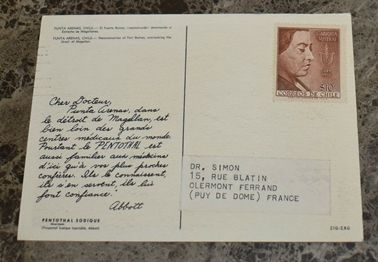 PUNTA ARENAS, CHILE — El Fuerte Bulnes, reconstruido dominando el
Estrecho de Magallanes.
PUNTA ARENAS, CHILE — Reconstruction of Fort Bulnes, overlooking the
Strait of Magellan.
Cher Docteur,
Punta Arenas, dans
le détroit de Magellan, est
bien loin des grands
centres médicaux du monde.
Pourtant le PENTOTHAL est
aussi familier aux médecins
d'ici qu'à vos plus proches
confrères. Ils le connaissent,
ils s'en servent, ils lui
font confiance.
Abbott
PENTOTHAL SODIQUE
(Thiopental sodique injectable, Abbott)
$10
CORREOS DE CHILE
DR, SIMON
15, RUE BLATIN
CLERMONT FERRAND
(PUY DE DOME) FRANCE